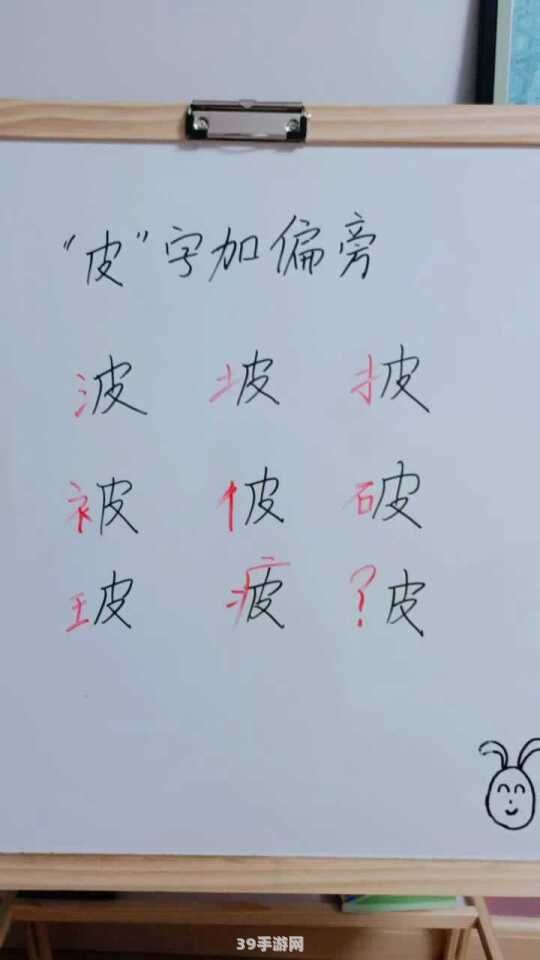 “皮”字加偏旁
波 坡 披
被 佊 破
玻 疲 ?皮
39手游网